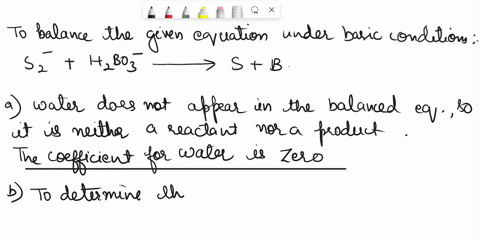 To balance the given equation under basic conditions:-
S₂⁻ + H₂BO₃⁻ ⟶ S + B
a) water does not appear in the balanced eq., so
it is neither a reactant nor a product.
The coefficient for water is zero
b) To determine th